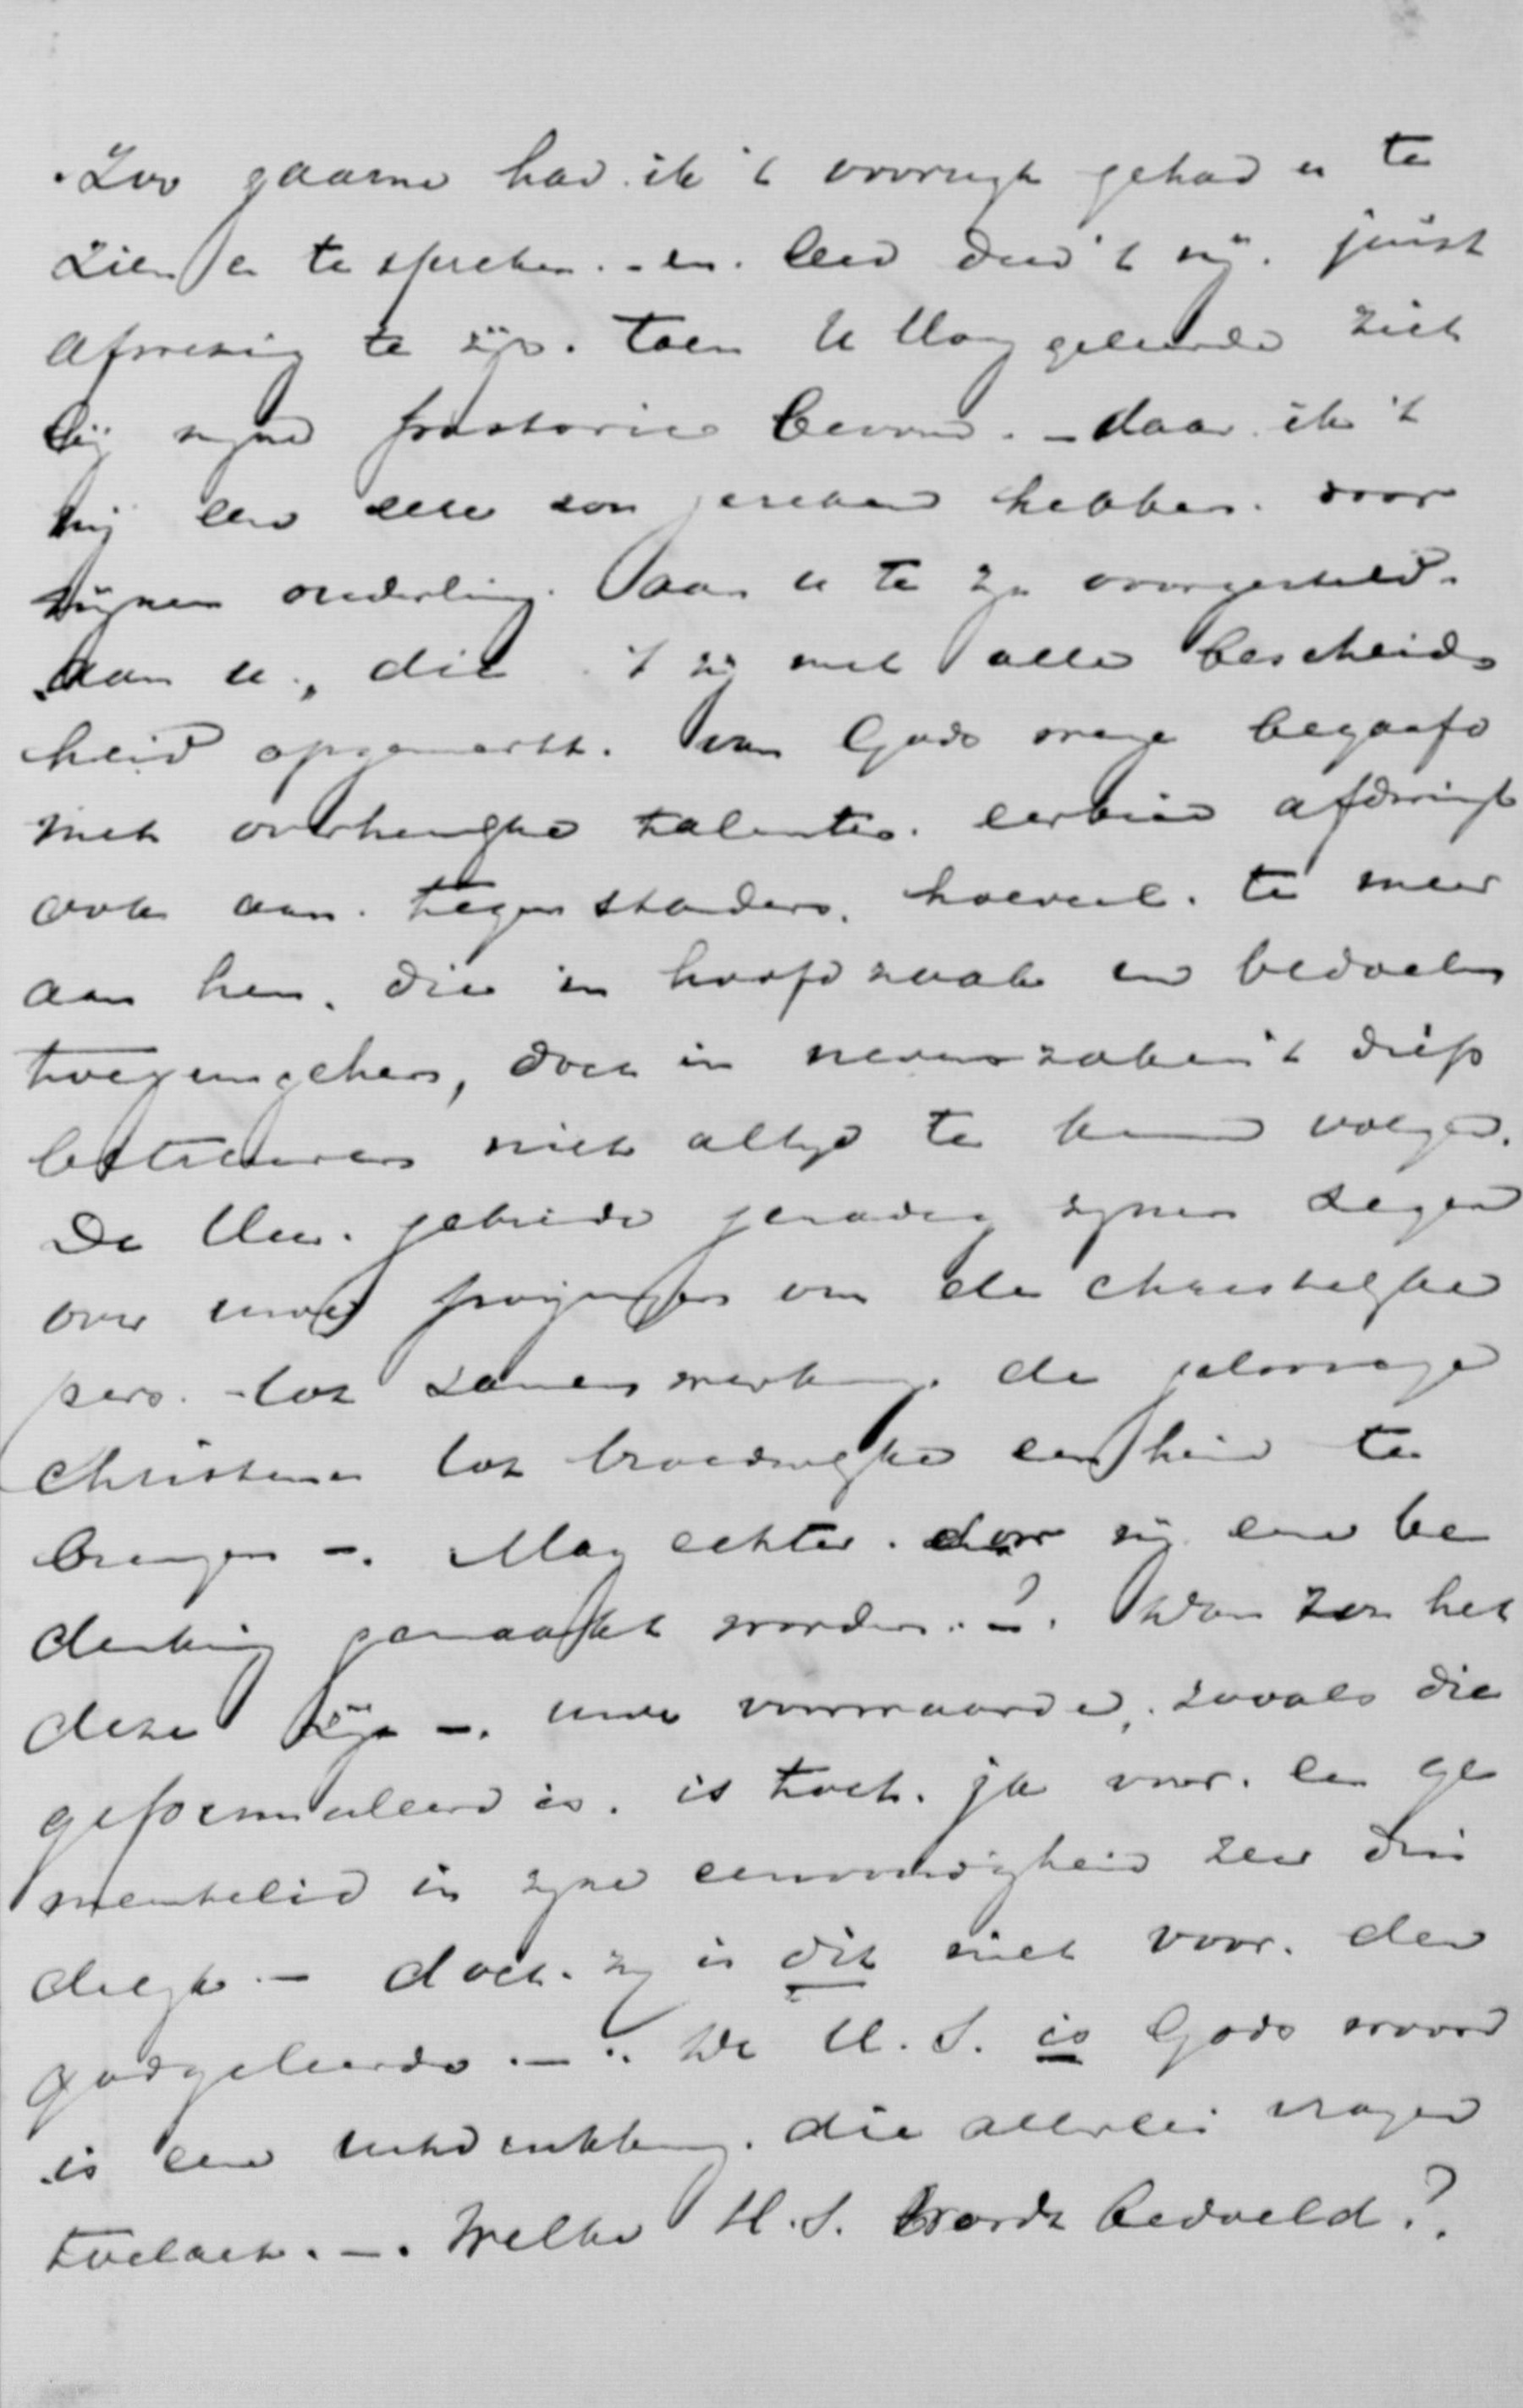 Zoo gaarne had ik 't voorregt gehad u te
zien en te spreken. - en leed deed 't mij. juist
afwezig te zijn. toen U Hooggeleerde zich
bij mijne pastorie bevond. - daar ik 't
mij een eere zou gerekend hebben. door
mijnen ouderling. aan u te zijn voorgesteld.
aan u, die 't zij met alle bescheiden
heid opgemerkt. van Gods wege begaafd
met voortreffelijke talenten. eerbied afdwingt
ook aan. tegenstanders. hoeveel. te meer
aan hen. die in hoofdzaak en bedoelen
, doch in nevenzaken 't diep
betreuren niet altijd te kunnen volgen.
De Heer. gebiede genadig zijnen zegen
over uwe pogingen om de christelijke
pers. - tot zamenwerking. de geloovige
christenen tot broederlijke eenheid te
brengen -. Mag echter. door mij eene be
denking gemaakt worden. -?. dan zou het
deze zijn -. uwe voorwaarde, zooals die
geformuleerd is. is toch. ja voor. een ge
meentelid in zijne eenvoudigheid zeer dui
delijk. - doch. zij is dit niet voor. den
godgeleerde. -. De H. S. is Gods woord
is eene uitdrukking. die allerlei vragen
toelaat. -. Welke H. S. wordt bedoeld?.